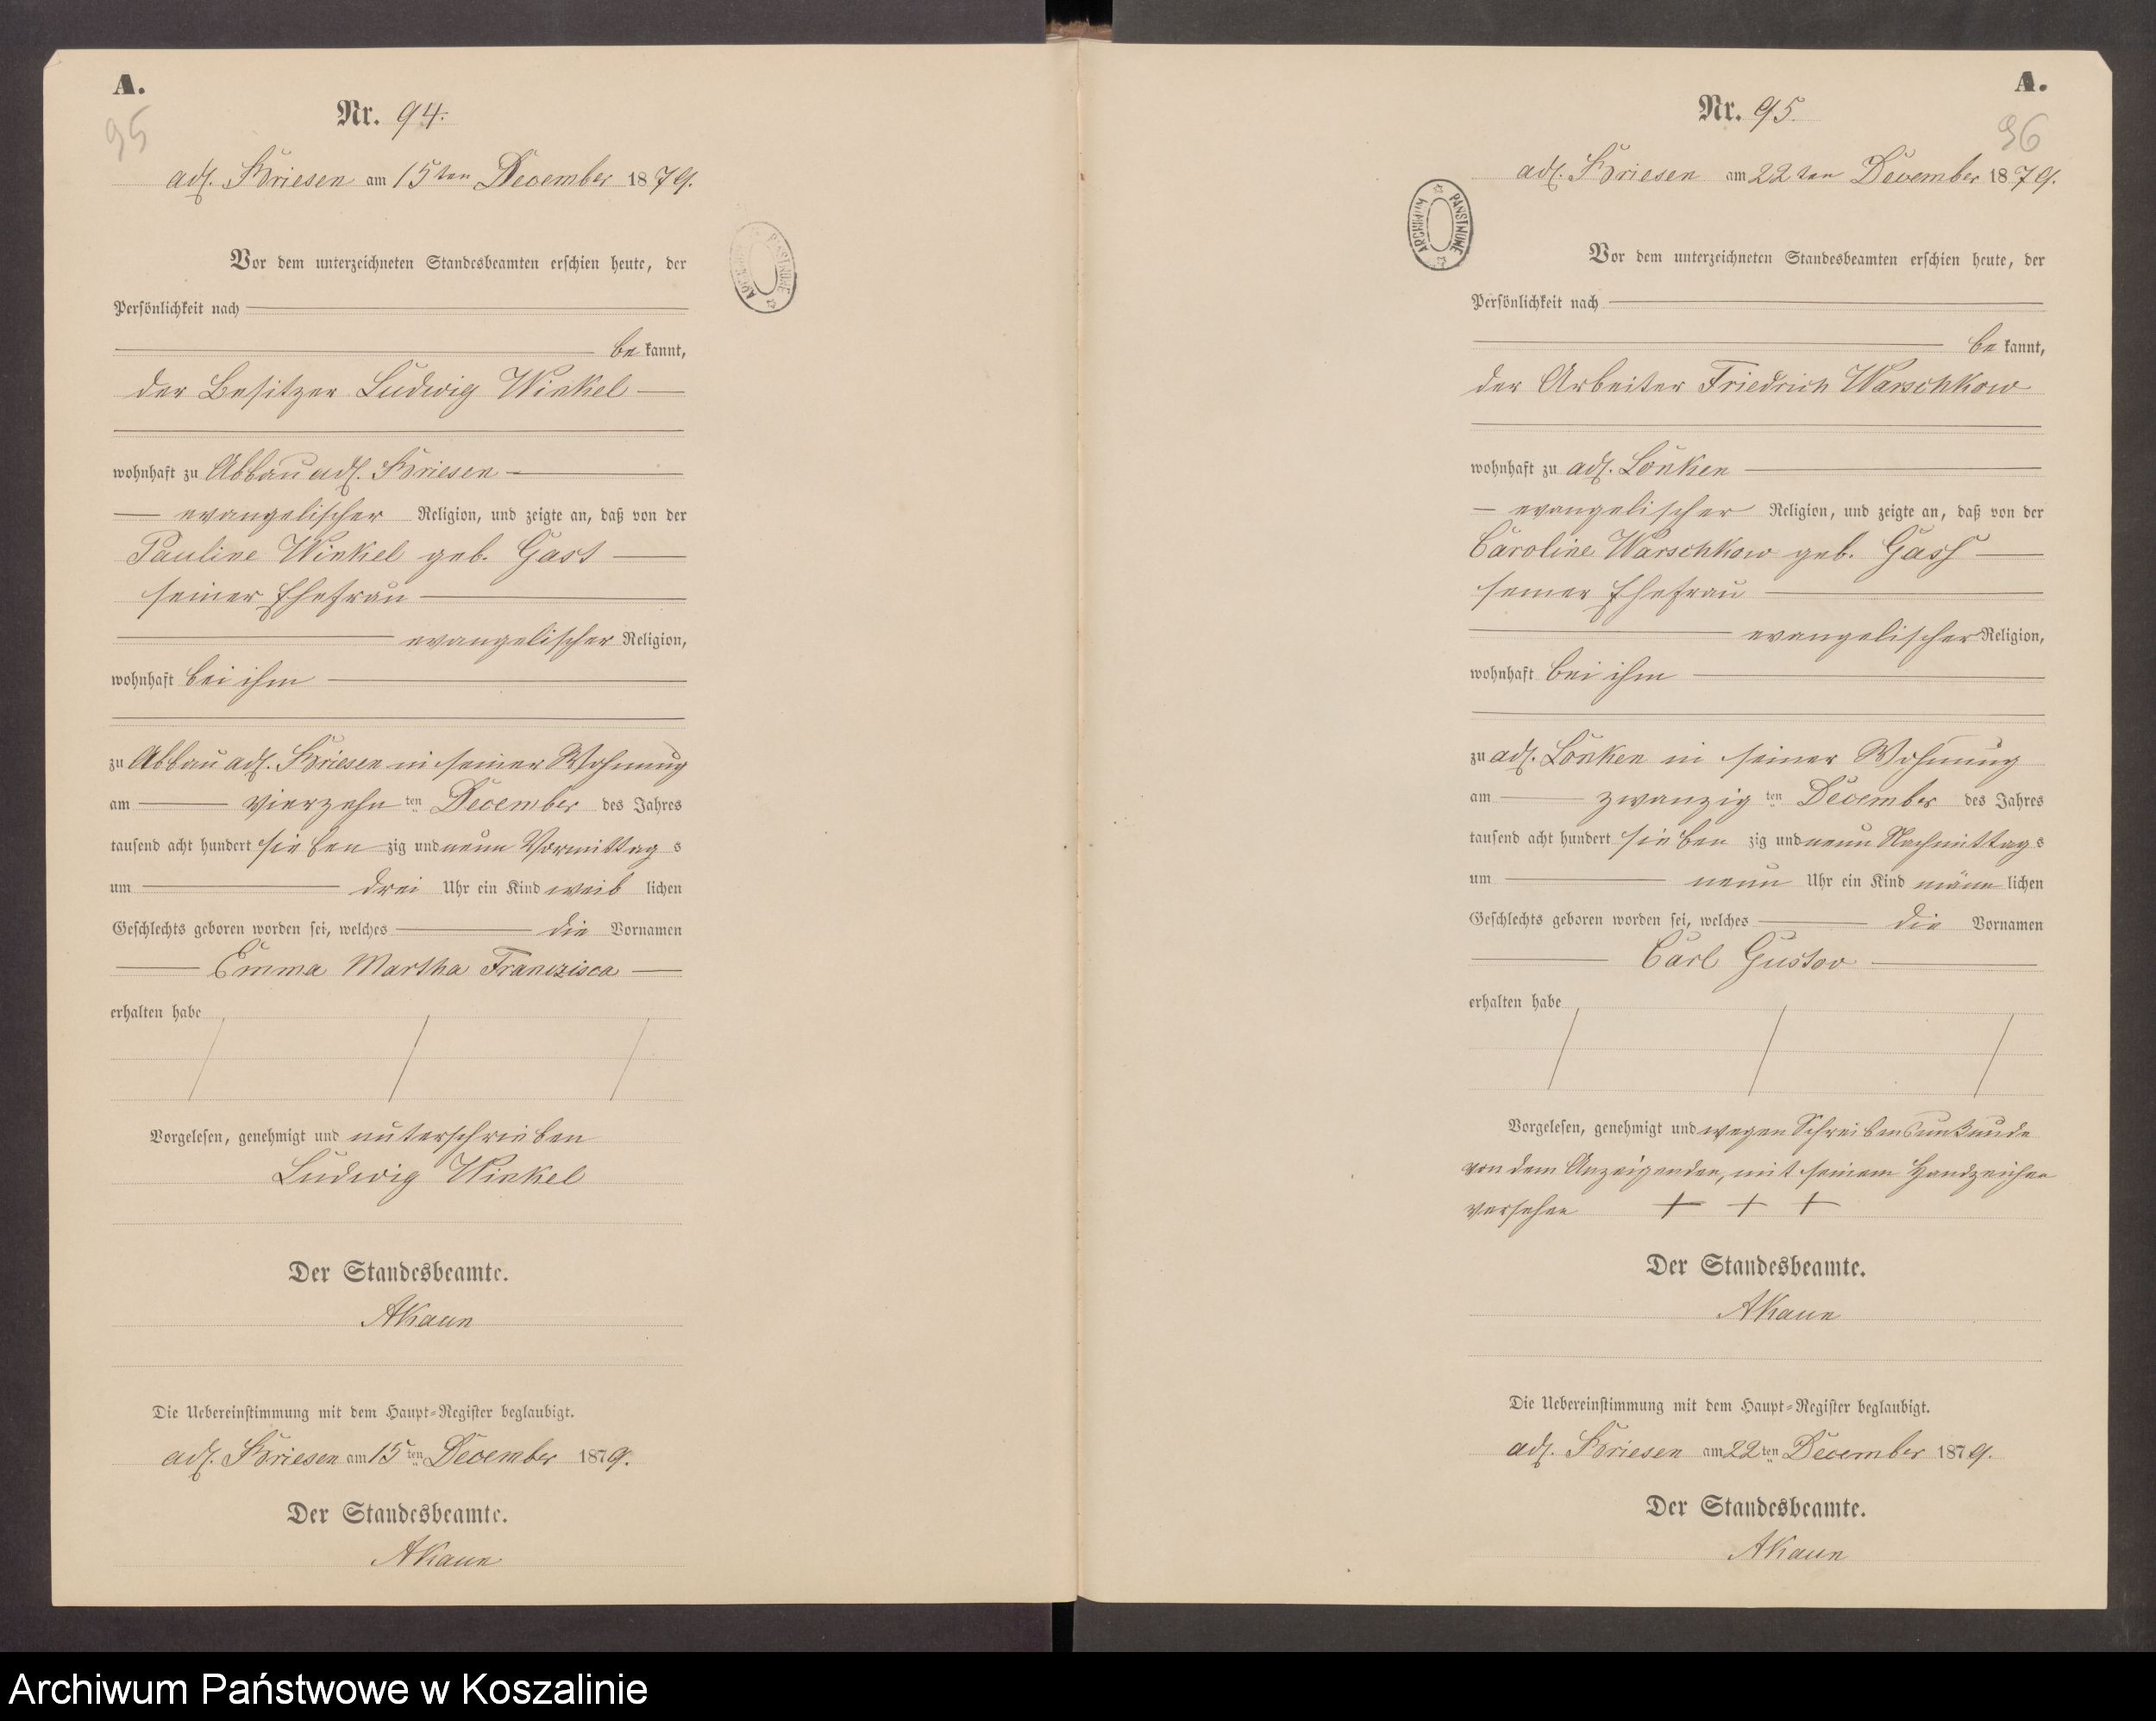 A.
95
Nr. 94.
adl. Briesen am 15ten December 1879.
Vor dem unterzeichneten Standesbeamten erschien heute, der
Persönlichkeit nach
be kannt,
der Besitzer Ludwig Winkel
wohnhaft zu Abbau adl. Briesen
evangelischer Religion, und zeigte an, daß von der
Pauline Winkel geb. Gast
seiner Ehefrau
evangelischer Religion,
wohnhaft bei ihm
zu Abbau adl. Briesen in seiner Wohnung
am vierzehn ten December des Jahres
tausend acht hundert sieben zig und neun Vormittag s
um drei Uhr ein Kind weib lichen
Geschlechts geboren worden sei, welches die Vornamen
Emma Martha Franziska
erhalten habe
Vorgelesen, genehmigt und unterschrieben
Ludwig Winkel
Der Standesbeamte.
AKaun
Die Uebereinstimmung mit dem Haupt-Register beglaubigt.
adl. Briesen am 15ten December 1879.
Der Standesbeamte.
AKaun
ARCHIWUM PAŃSTWOWE
A.
96
Nr. 95.
adl. Briesen am 22ten December 1879.
ARCHIWUM PAŃSTWOWE
Vor dem unterzeichneten Standesbeamten erschien heute, der
Persönlichkeit nach
be kannt,
der Arbeiter Friedrich Warschkow
wohnhaft zu adl. Lonken
evangelischer Religion, und zeigte an, daß von der
Caroline Warschkow geb.
seiner Ehefrau
evangelischer Religion,
wohnhaft bei ihm
zu adl. Lonken in seiner Wohnung
am zwanzig ten December des Jahres
tausend acht hundert sieben zig und neun Nachmittag s
um neun Uhr ein Kind männ lichen
Geschlechts geboren worden sei, welches die Vornamen
Carl Gustav
erhalten habe
Vorgelesen, genehmigt und wegen Schreibensunkunde
von dem Anzeigenden, mit seinem Handzeichen
versehen + + +
Der Standesbeamte.
AKaun
Die Uebereinstimmung mit dem Haupt-Register beglaubigt.
adl. Briesen am 22ten December 1879.
Der Standesbeamte.
AKaun
Archiwum Państwowe w Koszalinie